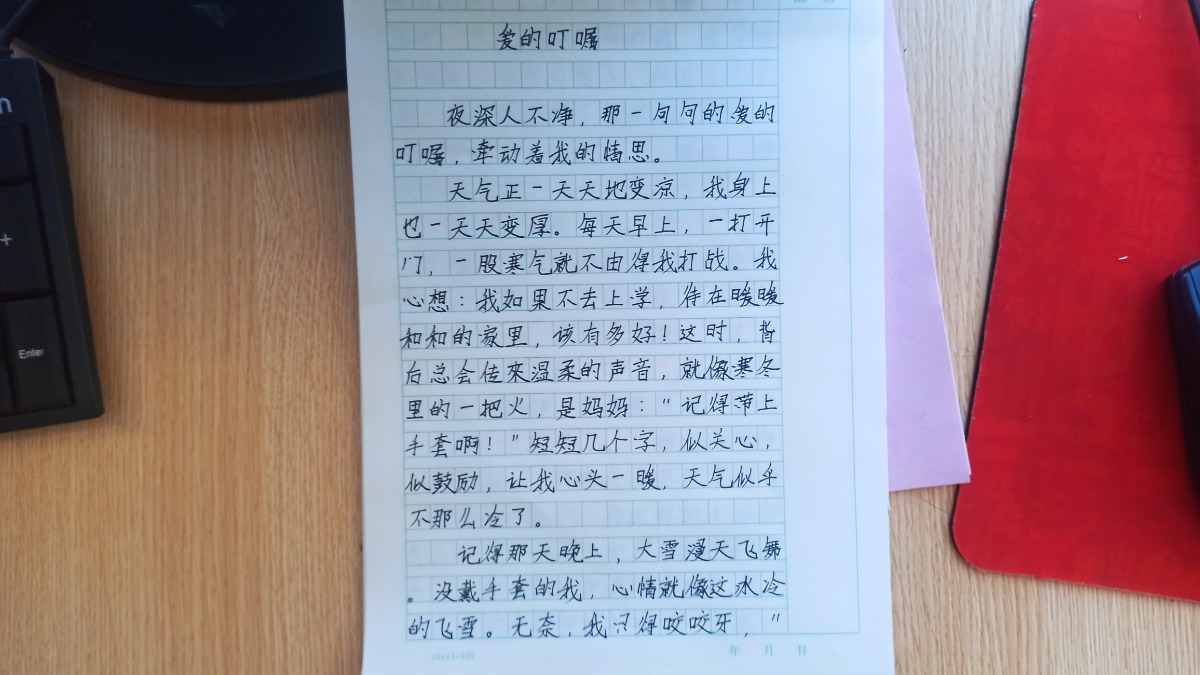 爱的叮嘱
夜深人不净，那一句句的爱的
叮嘱，牵动着我的情思。
天气正一天天地变凉，我身上
也一天天变厚。每天早上，一打开
门，一股寒气就不由得我打战。我
心想：我如果不去上学，待在暖暖
和和的家里，该有多好！这时，背
后总会传来温柔的声音，就像寒冬
里的一把火，是妈妈："记得带上
手套啊！"短短几个字，似关心，
似鼓励，让我心头一暖，天气似乎
不那么冷了。
记得那天晚上，大雪漫天飞舞
。没戴手套的我，心情就像这冰冷
的飞雪。无奈，我只得咬咬牙，"
年 月 日
n
+
Enter